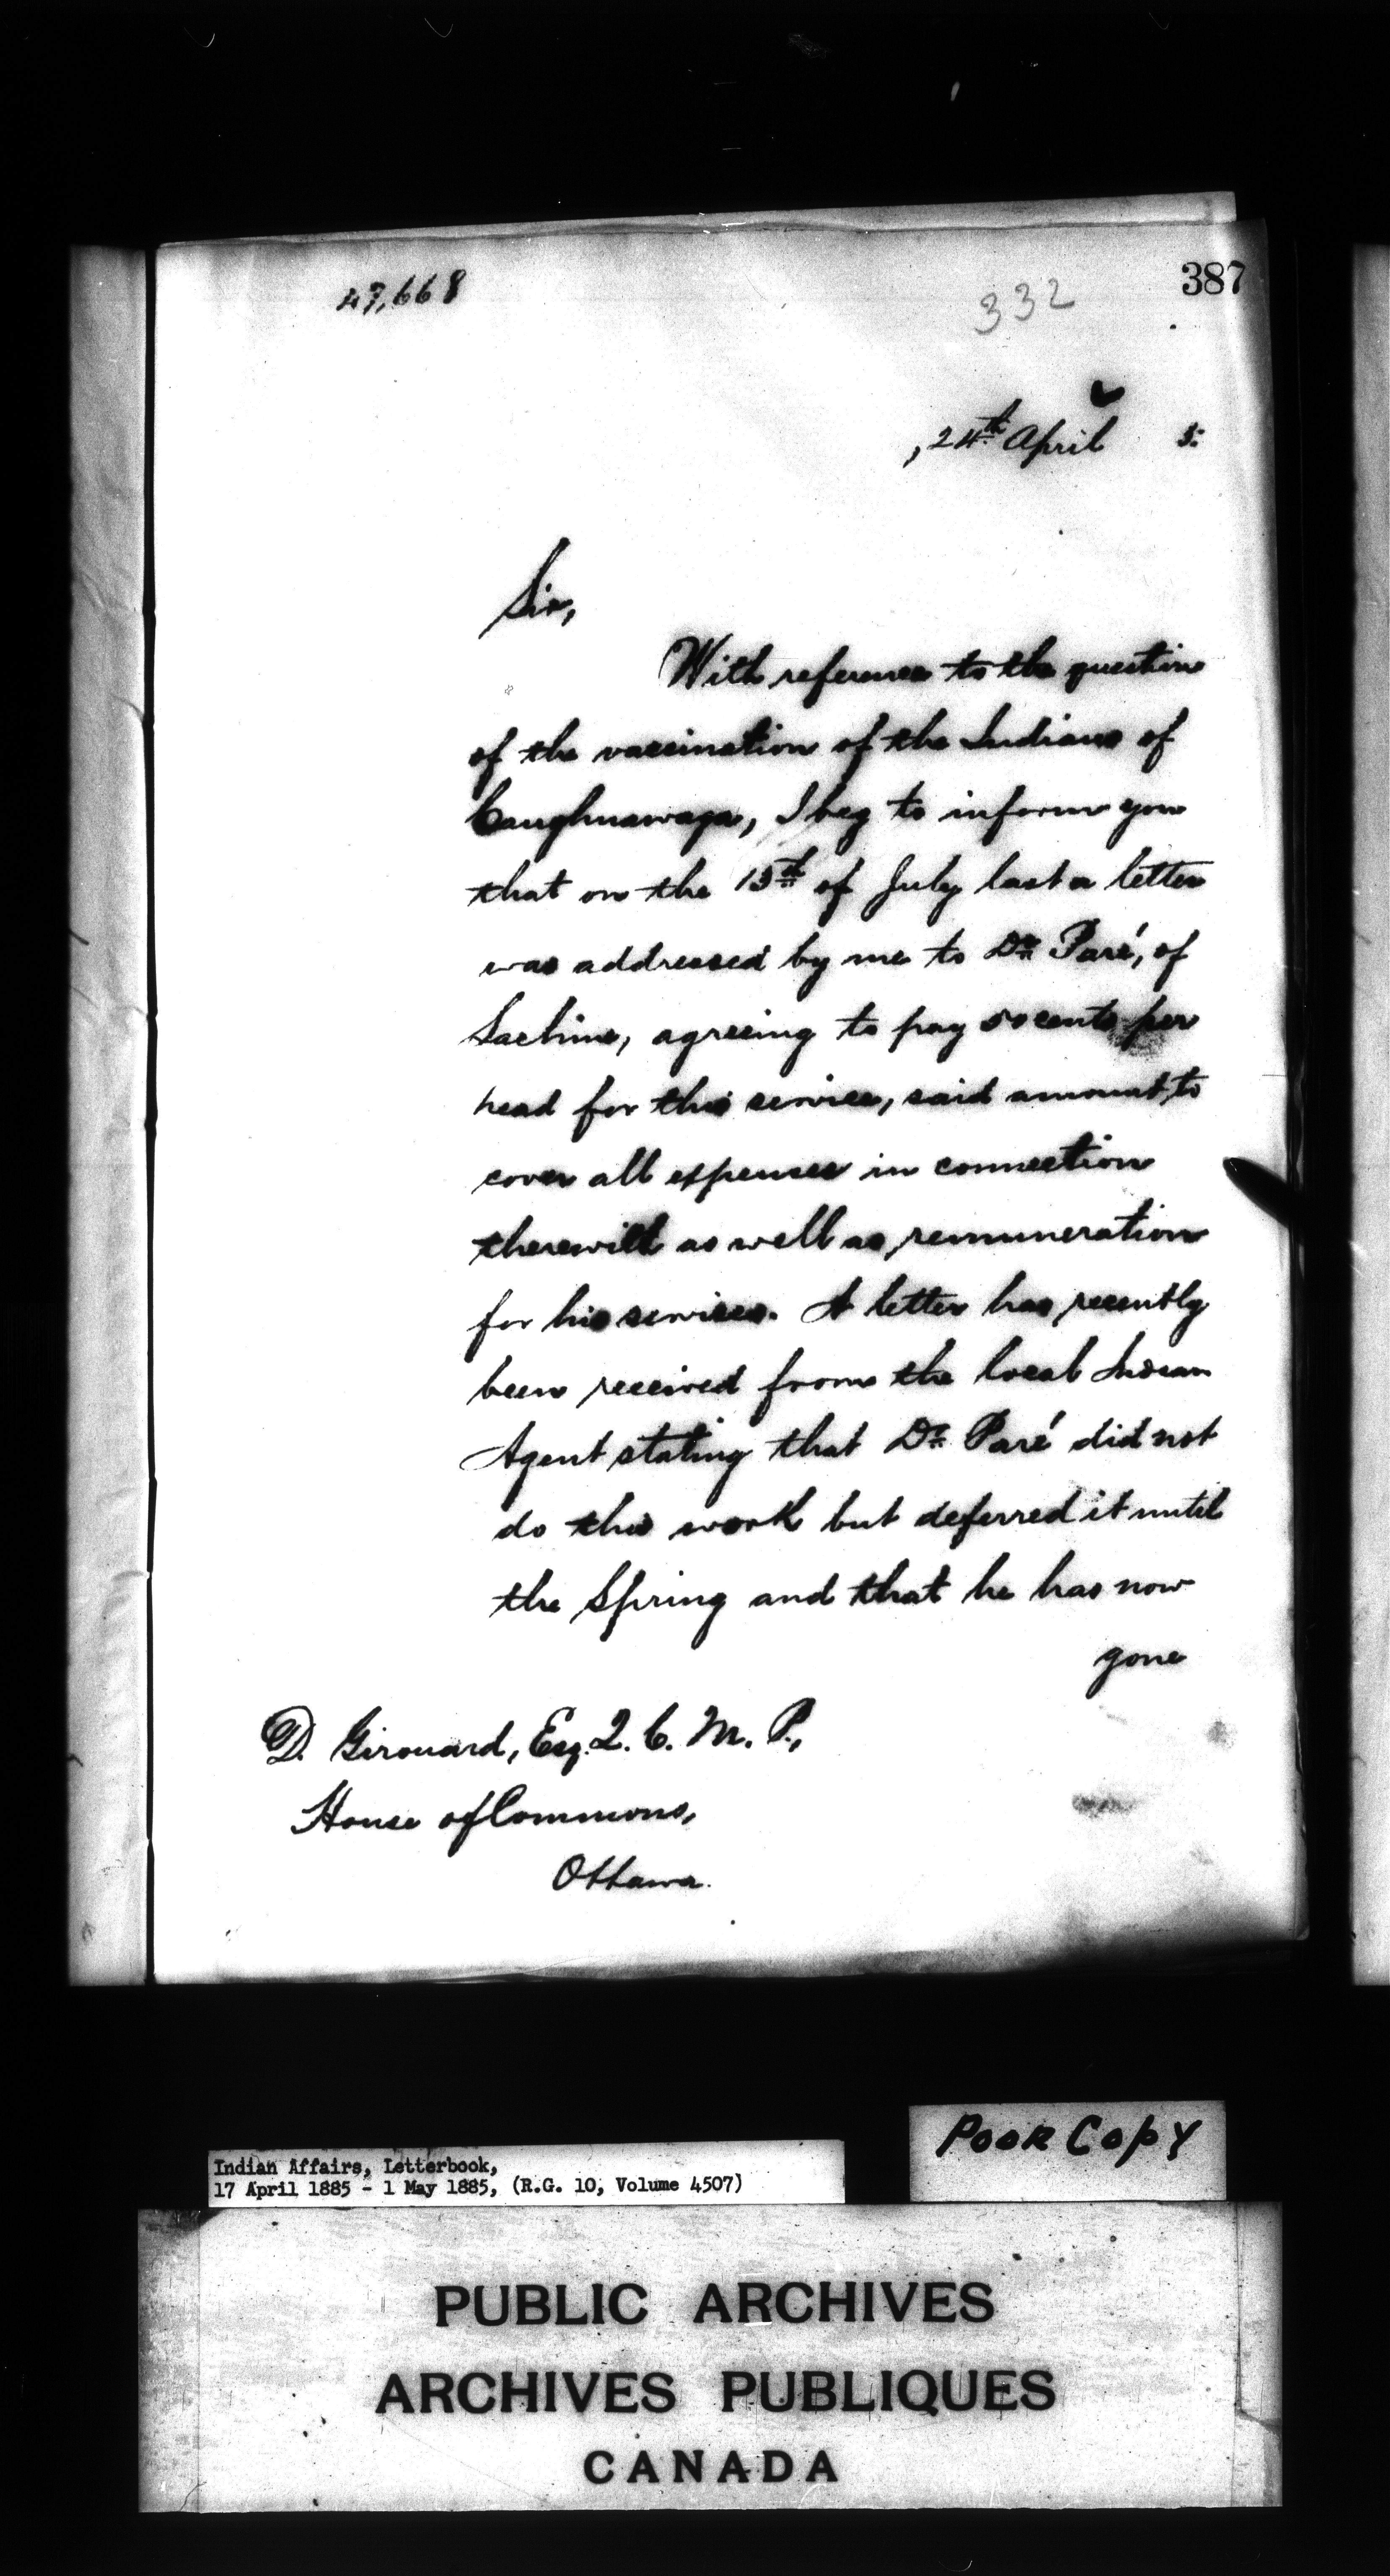 47,668
332
387
, 24th April 5.
Sir,
With reference to the question
of the vaccination of the Indians of
Caughnawaga, I beg to inform you
that on the 15th of July last a letter
was addressed by me to Dr. Paré, of
Lachine, agreeing to pay 50 cents per
head for this service, said amount to
cover all expenses in connection
therewith as well as remuneration
for his services. A letter has recently
been received from the local Indian
Agent stating that Dr. Paré did not
do this work but deferred it until
the Spring and that he has now
gone
D. Girouard, Esq. Q. C. M. P.,
House of Commons,
Ottawa.
Poor Copy
Indian Affairs, Letterbook,
17 April 1885 - 1 May 1885, (R.G. 10, Volume 4507)
PUBLIC ARCHIVES
ARCHIVES PUBLIQUES
CANADA